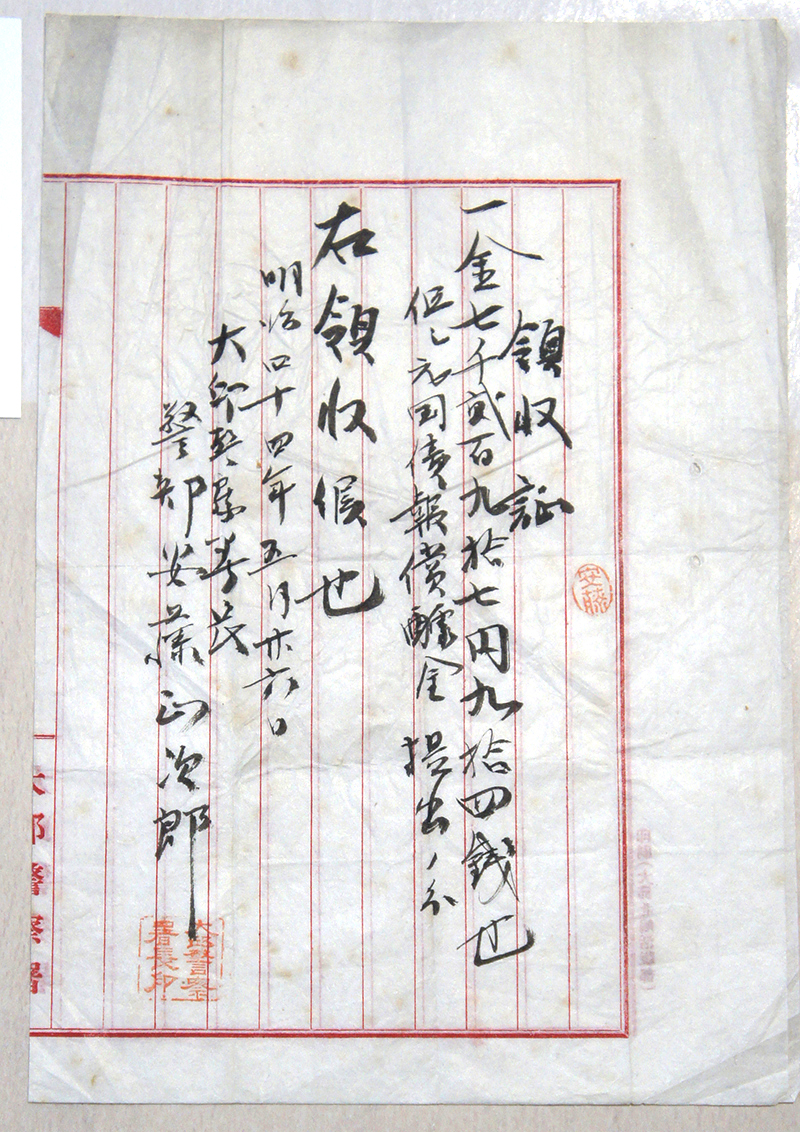 安藤
領収証
一金七千弐百九拾七円九拾四銭也
但シ元国債報償醵金提出ノ分
右領収候也
明治四十四年五月廿六日
大邱警察署長
警部安藤正次郎
大邱警察署長之印
大邱警察署